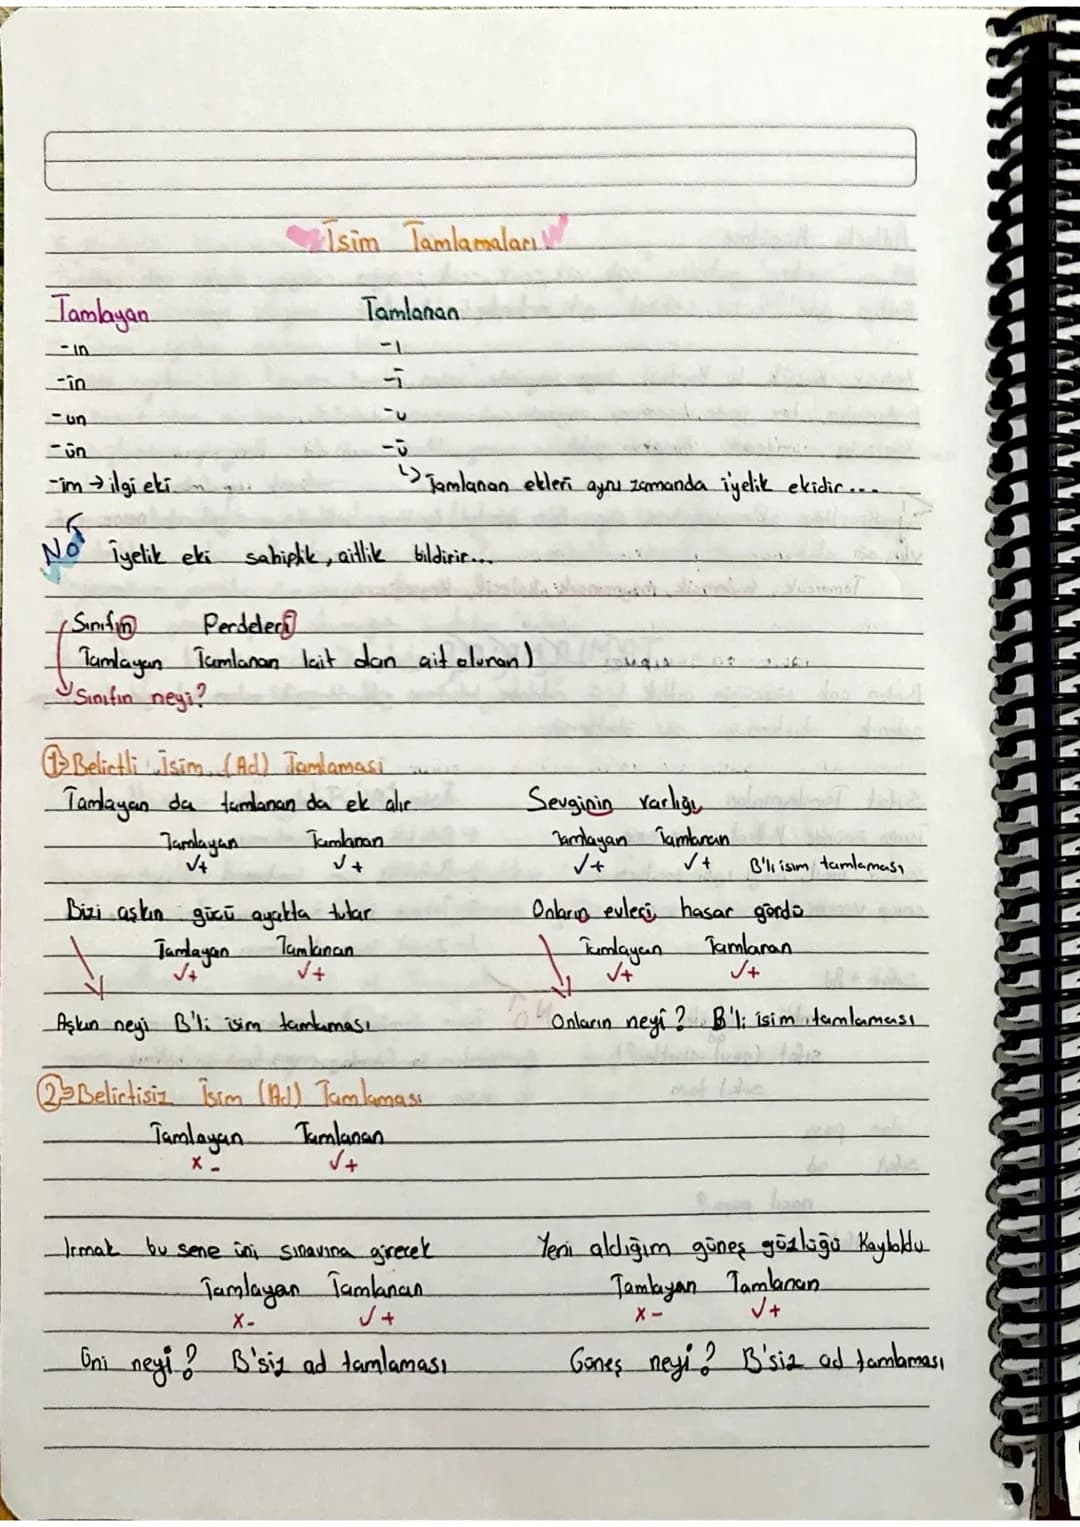 İsim Tamlamaları
Tamlayan Tamlanan
-ın -ı
-in -i
-un -u
-ün -ü
-im → ilgi eki ↳ Tamlanan ekleri aynı zamanda iyelik ekidir...
Not İyelik eki sahiplik, aitlik bildirir...
Sınıfın Perdeleri
Tamlayan Tamlanan (ait olan ait olunan)
Sınıfın neyi?
1→ Belirtli İsim (Ad) Tamlaması
Tamlayan da tamlanan da ek alır Sevginin varlığı
Tamlayan Tamlanan Tamlayan Tamlanan
√+ √+ √+ √+ B'li isim tamlaması
Bizi aşkın gücü ayakta tutar Onların evleri hasar gördü
Tamlayan Tamlanan Tamlayan Tamlanan
√+ √+ √+ √+
Aşkın neyi B'li isim tamlaması Onların neyi? B'li isim tamlaması
2→ Belirtisiz İsim (Ad) Tamlaması
Tamlayan Tamlanan
x - √+
Irmak bu sene üni sınavına girecek Yeni aldığım güneş gözlüğü Kayboldu
Tamlayan Tamlanan Tamlayan Tamlanan
x - √+ x - √+
Üni neyi? B'siz ad tamlaması Güneş neyi? B'siz ad tamlaması